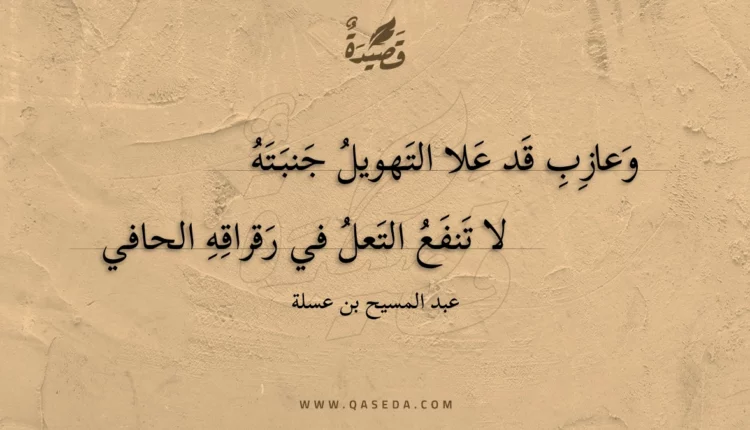 قَصِيدَةٌ
وَعازِبِ قَد عَلا التَهويلُ جَنبَتَهُ
لا تَنفَعُ التَعلُ في رَقراقِهِ الحافي
عبد المسيح بن عسلة
WWW.QASEDA.COM